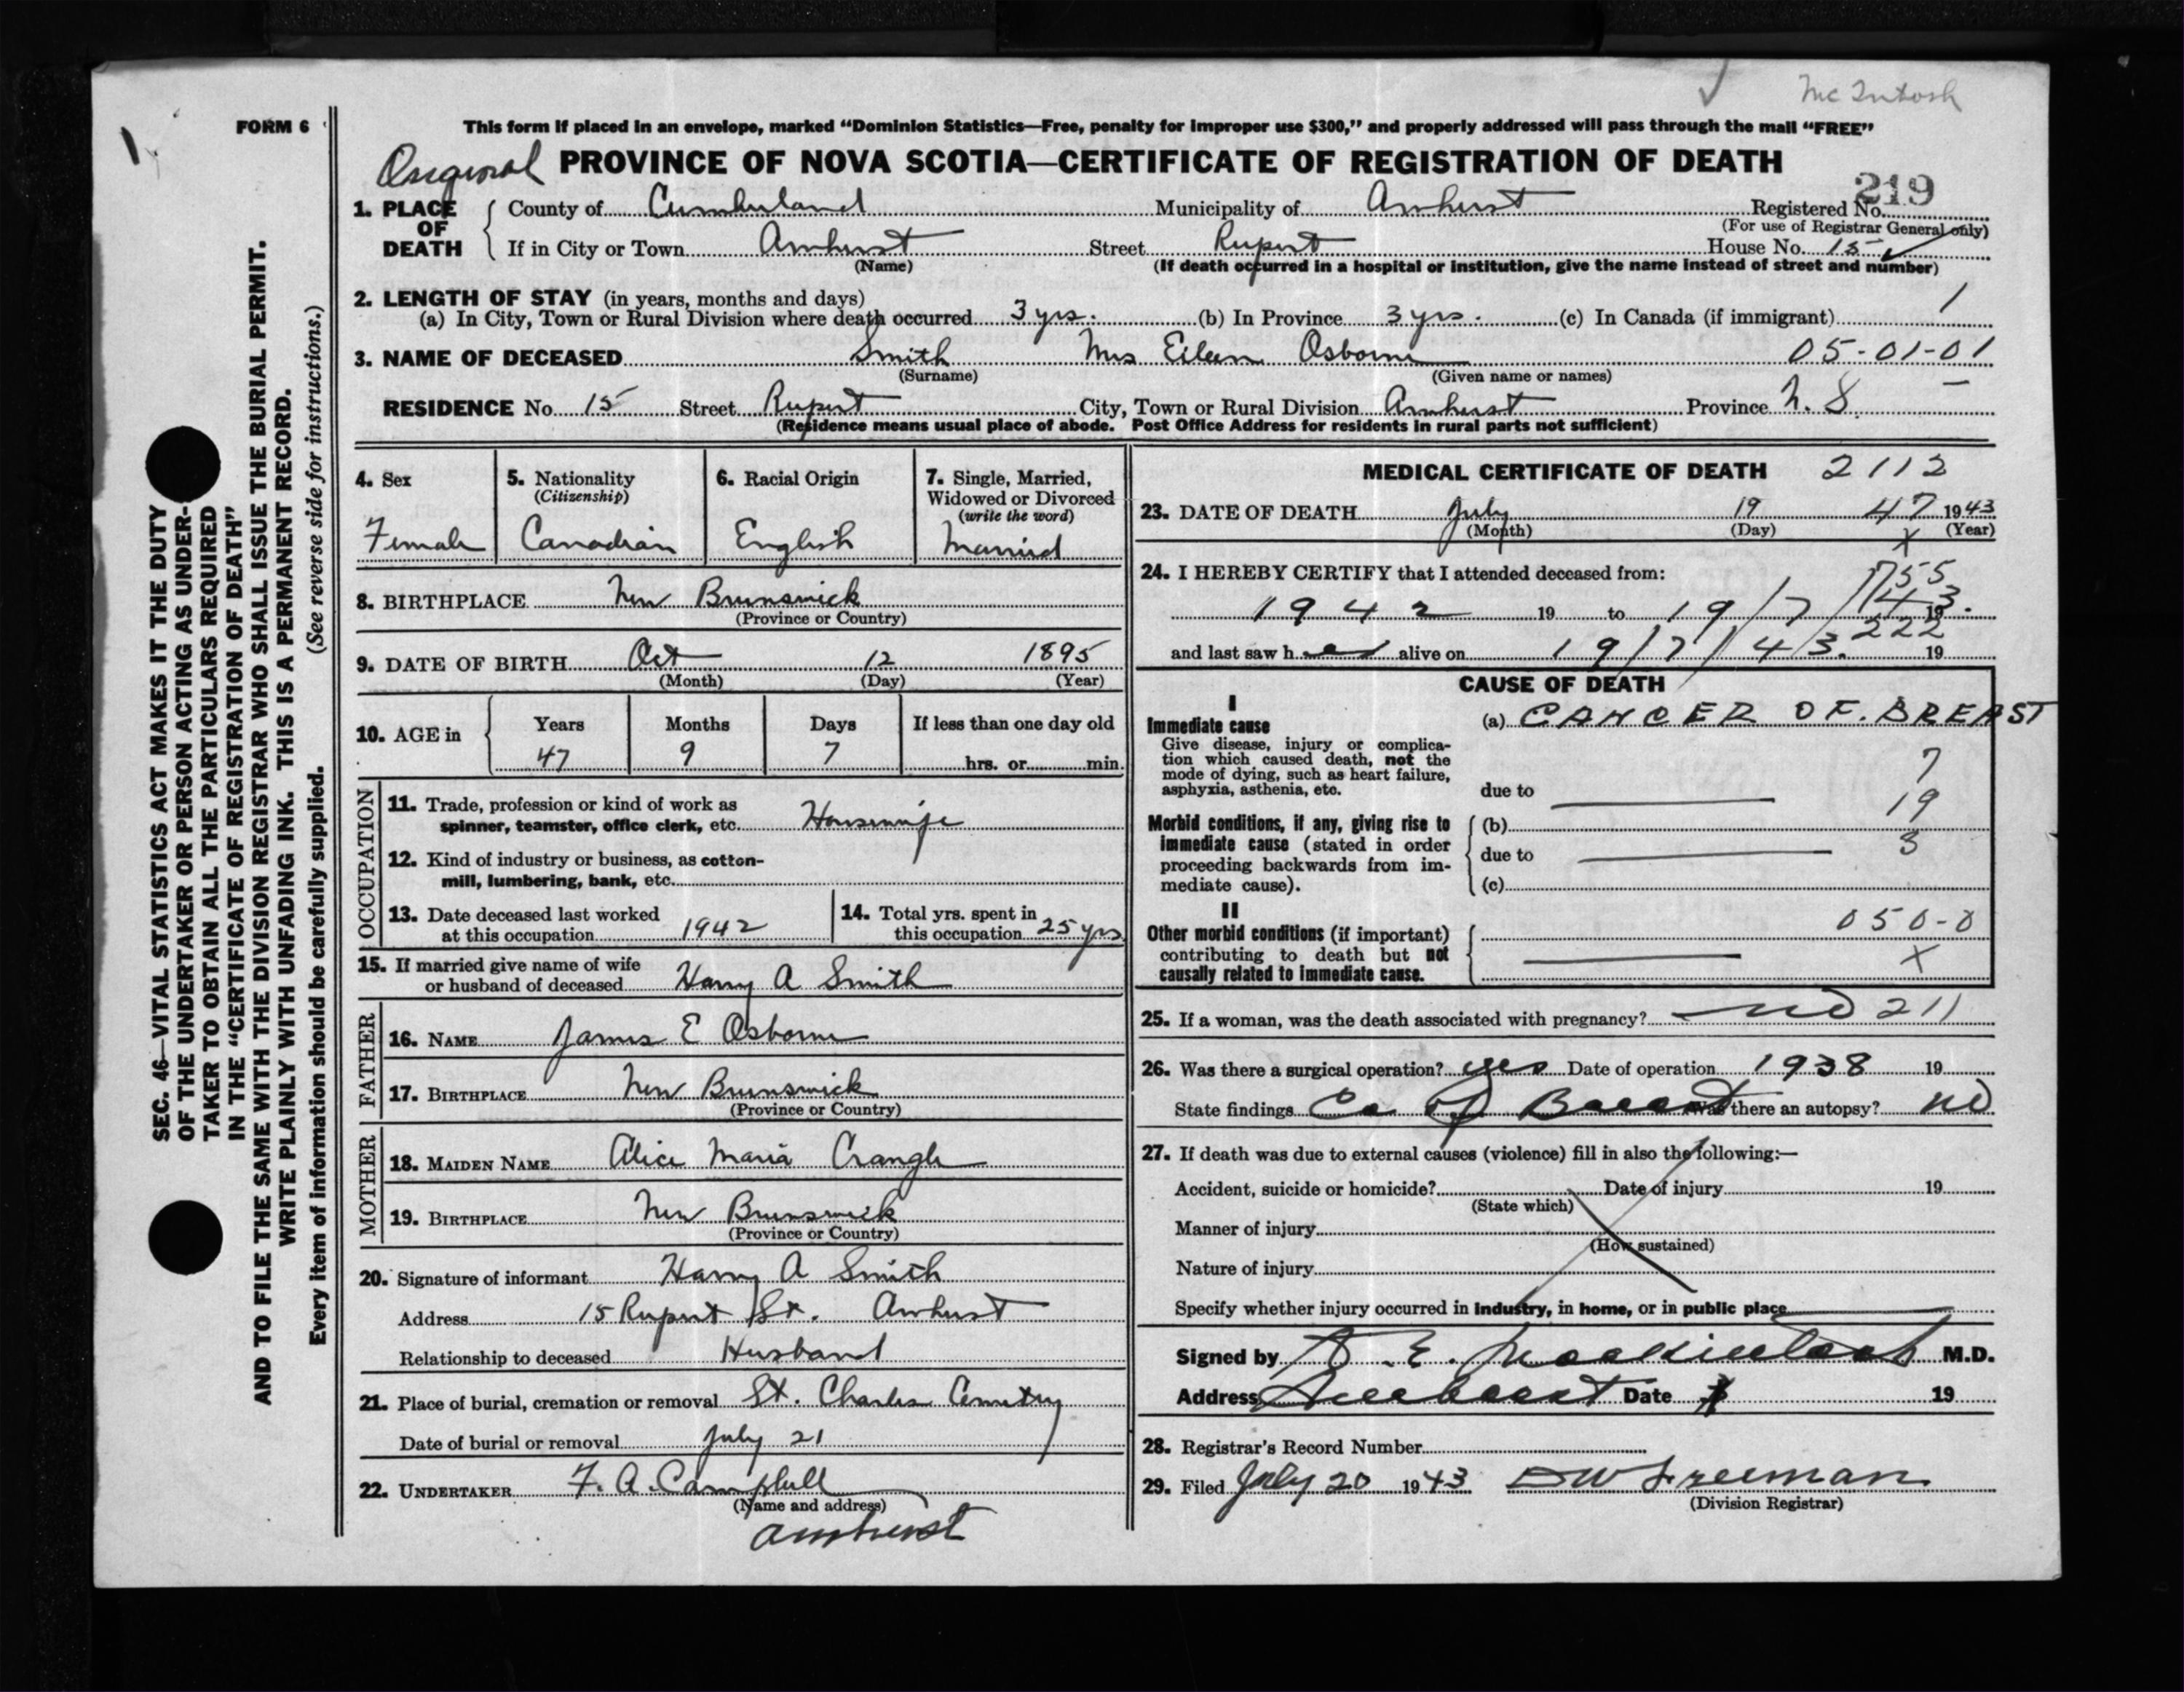 McIntosh
FORM 6
This form if placed in an envelope, marked "Dominion Statistics—Free, penalty for improper use $300," and properly addressed will pass through the mail "FREE"
Original PROVINCE OF NOVA SCOTIA—CERTIFICATE OF REGISTRATION OF DEATH
219
1. PLACE OF DEATH County of Cumberland Municipality of Amherst Registered No.
(For use of Registrar General only)
If in City or Town Amherst Street Rupert House No. 15
(Name) (If death occurred in a hospital or institution, give the name instead of street and number)
2. LENGTH OF STAY (in years, months and days)
(a) In City, Town or Rural Division where death occurred 3 yrs. (b) In Province 3 yrs. (c) In Canada (if immigrant) 1
3. NAME OF DECEASED Smith Mrs Eileen Osborne 05-01-01
(Surname) (Given name or names)
RESIDENCE No. 15 Street Rupert City, Town or Rural Division Amherst Province N.S. –
(Residence means usual place of abode. Post Office Address for residents in rural parts not sufficient)
SEC. 46—VITAL STATISTICS ACT MAKES IT THE DUTY
OF THE UNDERTAKER OR PERSON ACTING AS UNDER-
TAKER TO OBTAIN ALL THE PARTICULARS REQUIRED
IN THE "CERTIFICATE OF REGISTRATION OF DEATH"
AND TO FILE THE SAME WITH THE DIVISION REGISTRAR WHO SHALL ISSUE THE BURIAL PERMIT.
WRITE PLAINLY WITH UNFADING INK. THIS IS A PERMANENT RECORD.
Every item of information should be carefully supplied. (See reverse side for instructions.)
4. Sex
Female
5. Nationality
(Citizenship)
Canadian
6. Racial Origin
English
7. Single, Married,
Widowed or Divorced
(write the word)
Married
8. BIRTHPLACE New Brunswick
(Province or Country)
9. DATE OF BIRTH Oct 12 1895
(Month) (Day) (Year)
10. AGE in Years Months Days If less than one day old
47 9 7 hrs. or min.
OCCUPATION
11. Trade, profession or kind of work as
spinner, teamster, office clerk, etc. Housewife
12. Kind of industry or business, as cotton-
mill, lumbering, bank, etc.
13. Date deceased last worked
at this occupation 1942
14. Total yrs. spent in
this occupation 25 yrs
15. If married give name of wife
or husband of deceased Harry A Smith
FATHER
16. NAME James E Osborne
17. BIRTHPLACE New Brunswick
(Province or Country)
MOTHER
18. MAIDEN NAME Alice Maria Crangle
19. BIRTHPLACE New Brunswick
(Province or Country)
20. Signature of informant Harry A Smith
Address 15 Rupert St. Amherst
Relationship to deceased Husband
21. Place of burial, cremation or removal St. Charles Cemetry
Date of burial or removal July 21
22. UNDERTAKER F. A. Campbell
(Name and address)
Amherst
MEDICAL CERTIFICATE OF DEATH 2112
23. DATE OF DEATH July 19 47 1943
(Month) (Day) X (Year)
24. I HEREBY CERTIFY that I attended deceased from:
755
1942 19 to 19/7/43. 19
222
and last saw h er alive on 19/7/43. 19
CAUSE OF DEATH
I
Immediate cause
Give disease, injury or complica-
tion which caused death, not the
mode of dying, such as heart failure,
asphyxia, asthenia, etc.
(a) CANCER OF. BREAST
7
due to
19
Morbid conditions, if any, giving rise to
immediate cause (stated in order
proceeding backwards from im-
mediate cause).
(b)
due to
3
(c)
II
Other morbid conditions (if important)
contributing to death but not
causally related to immediate cause.
050-0
X
25. If a woman, was the death associated with pregnancy? no 211
26. Was there a surgical operation? yes Date of operation 1938 19
State findings Ca of Breast Was there an autopsy? no
27. If death was due to external causes (violence) fill in also the following:—
Accident, suicide or homicide? Date of injury 19
(State which)
Manner of injury
(How sustained)
Nature of injury
Specify whether injury occurred in industry, in home, or in public place
Signed by E. Mackintosh M.D.
Address Amherst Date 19
28. Registrar's Record Number
29. Filed July 20 1943 Freeman
(Division Registrar)